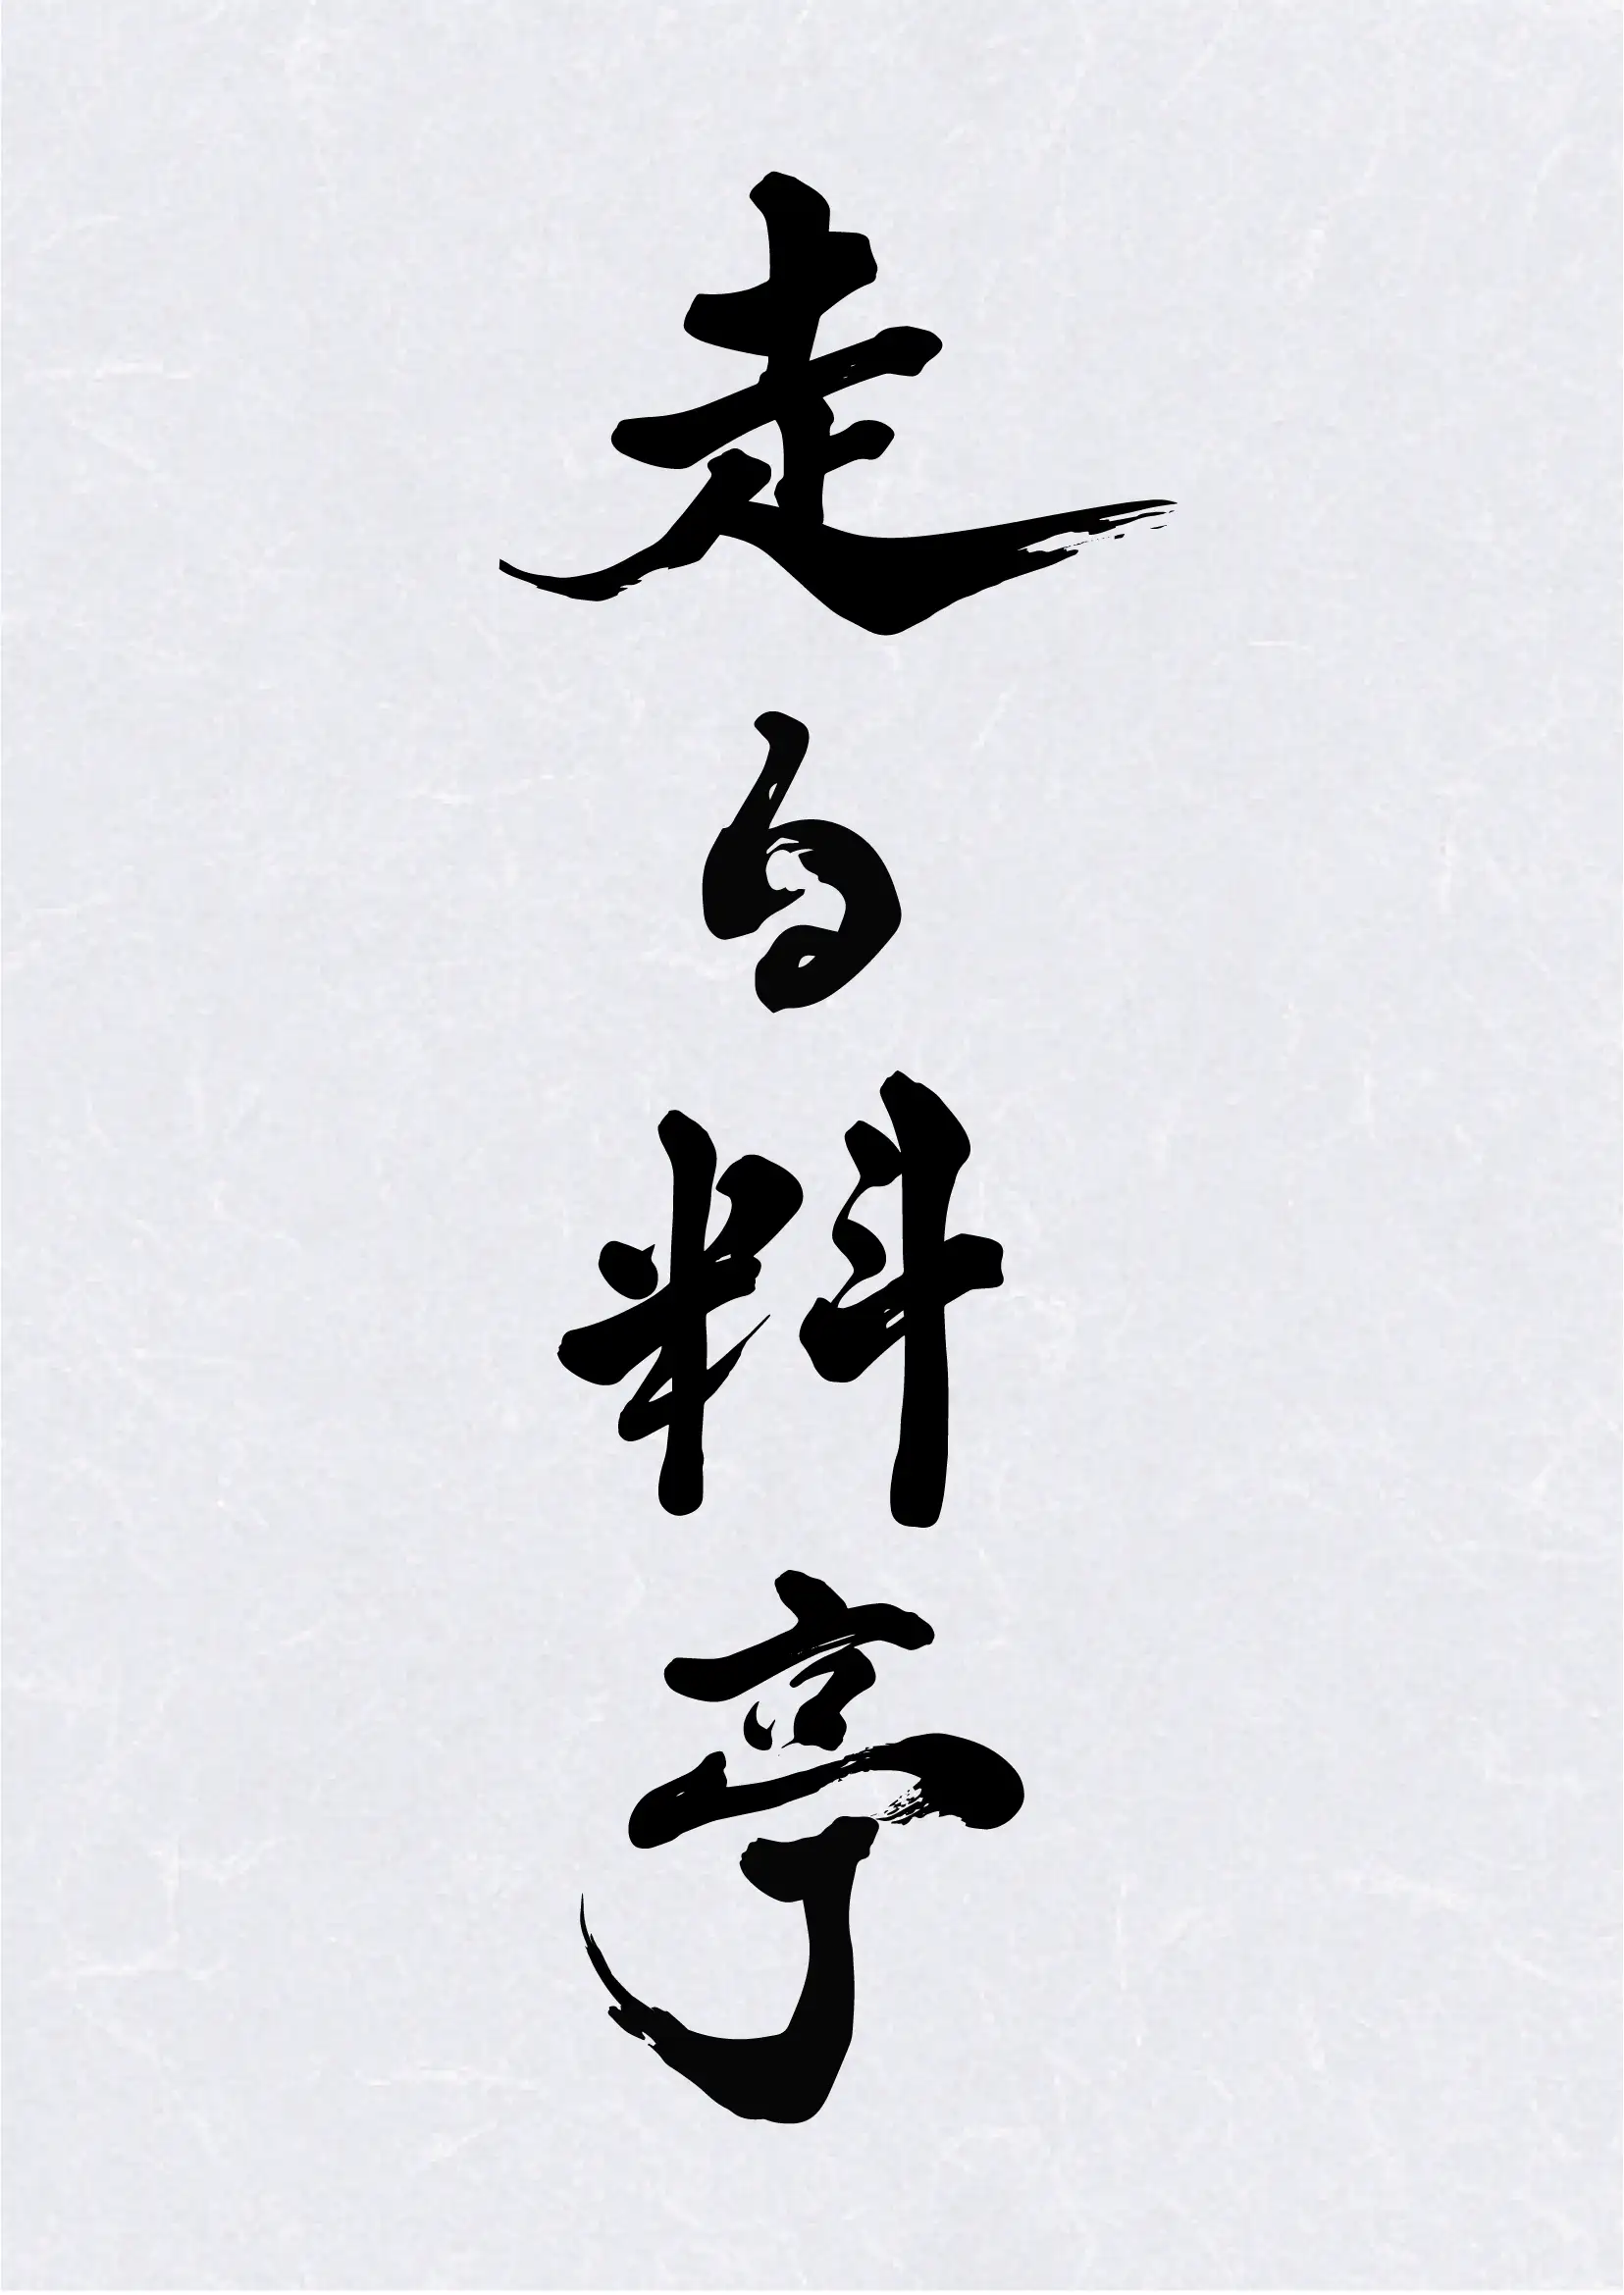 走る料亭